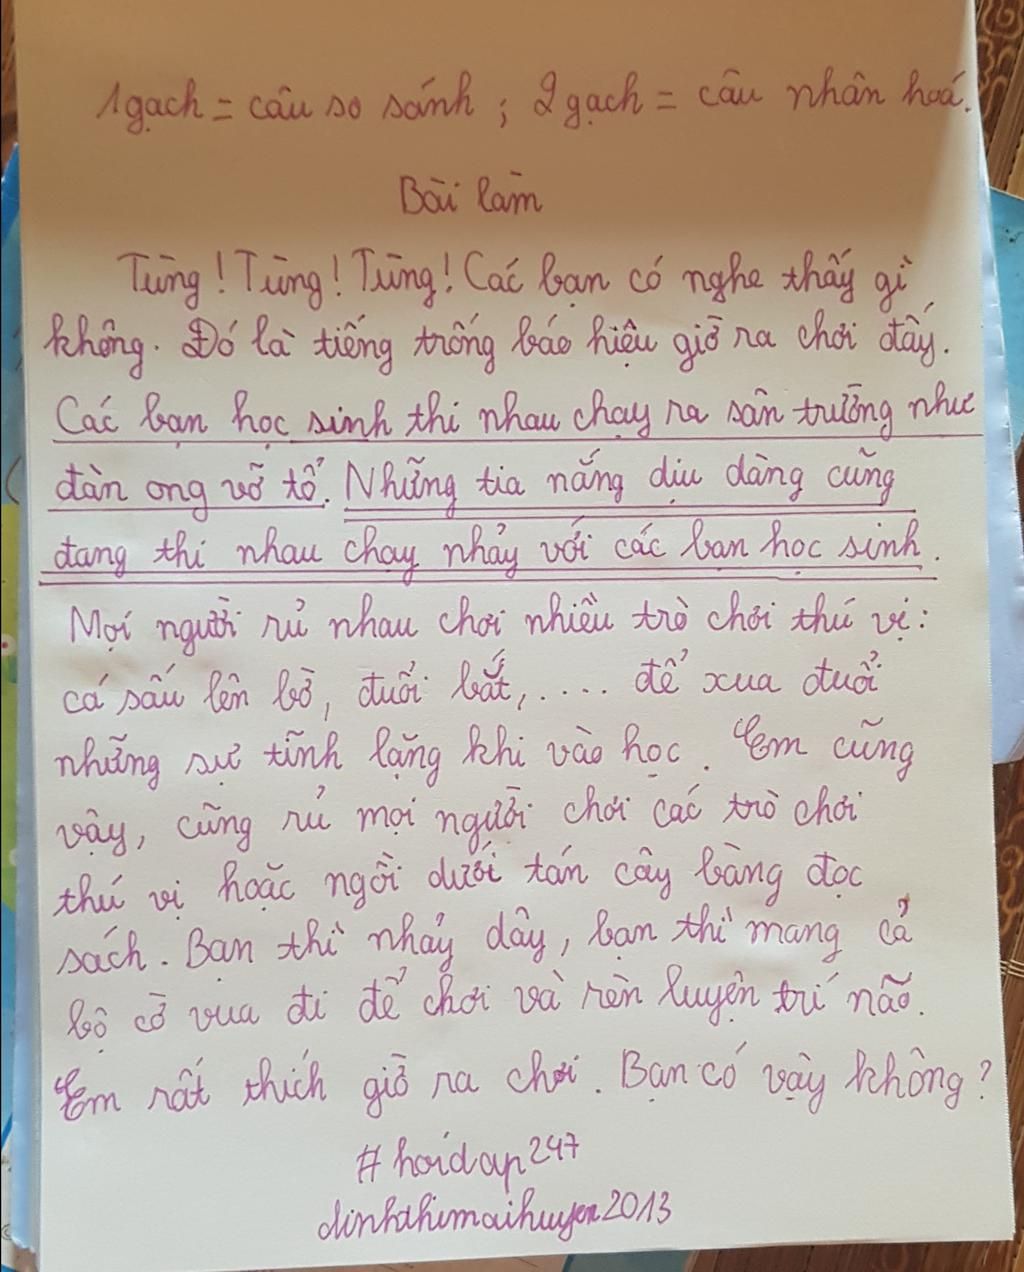 1 gạch = câu so sánh ; 2 gạch = câu nhân hoá.
Bài làm
Tùng ! Tùng ! Tùng ! Các bạn có nghe thấy gì
không. Đó là tiếng trống báo hiệu giờ ra chơi đấy.
Các bạn học sinh thi nhau chạy ra sân trường như
đàn ong vỡ tổ. Những tia nắng dịu dàng cũng
đang thi nhau chạy nhảy với các bạn học sinh.
Mọi người rủ nhau chơi nhiều trò chơi thú vị :
cá sấu lên bờ, đuổi bắt, .... để xua đuổi
những sự tĩnh lặng khi vào học. Em cũng
vậy, cũng rủ mọi người chơi các trò chơi
thú vị hoặc ngồi dưới tán cây bàng đọc
sách. Bạn thì nhảy dây, bạn thì mang cả
bộ cờ vua đi để chơi và rèn luyện trí não.
Em rất thích giờ ra chơi. Bạn có vậy không ?
# hoidap247
dinhthimaihuyen2013